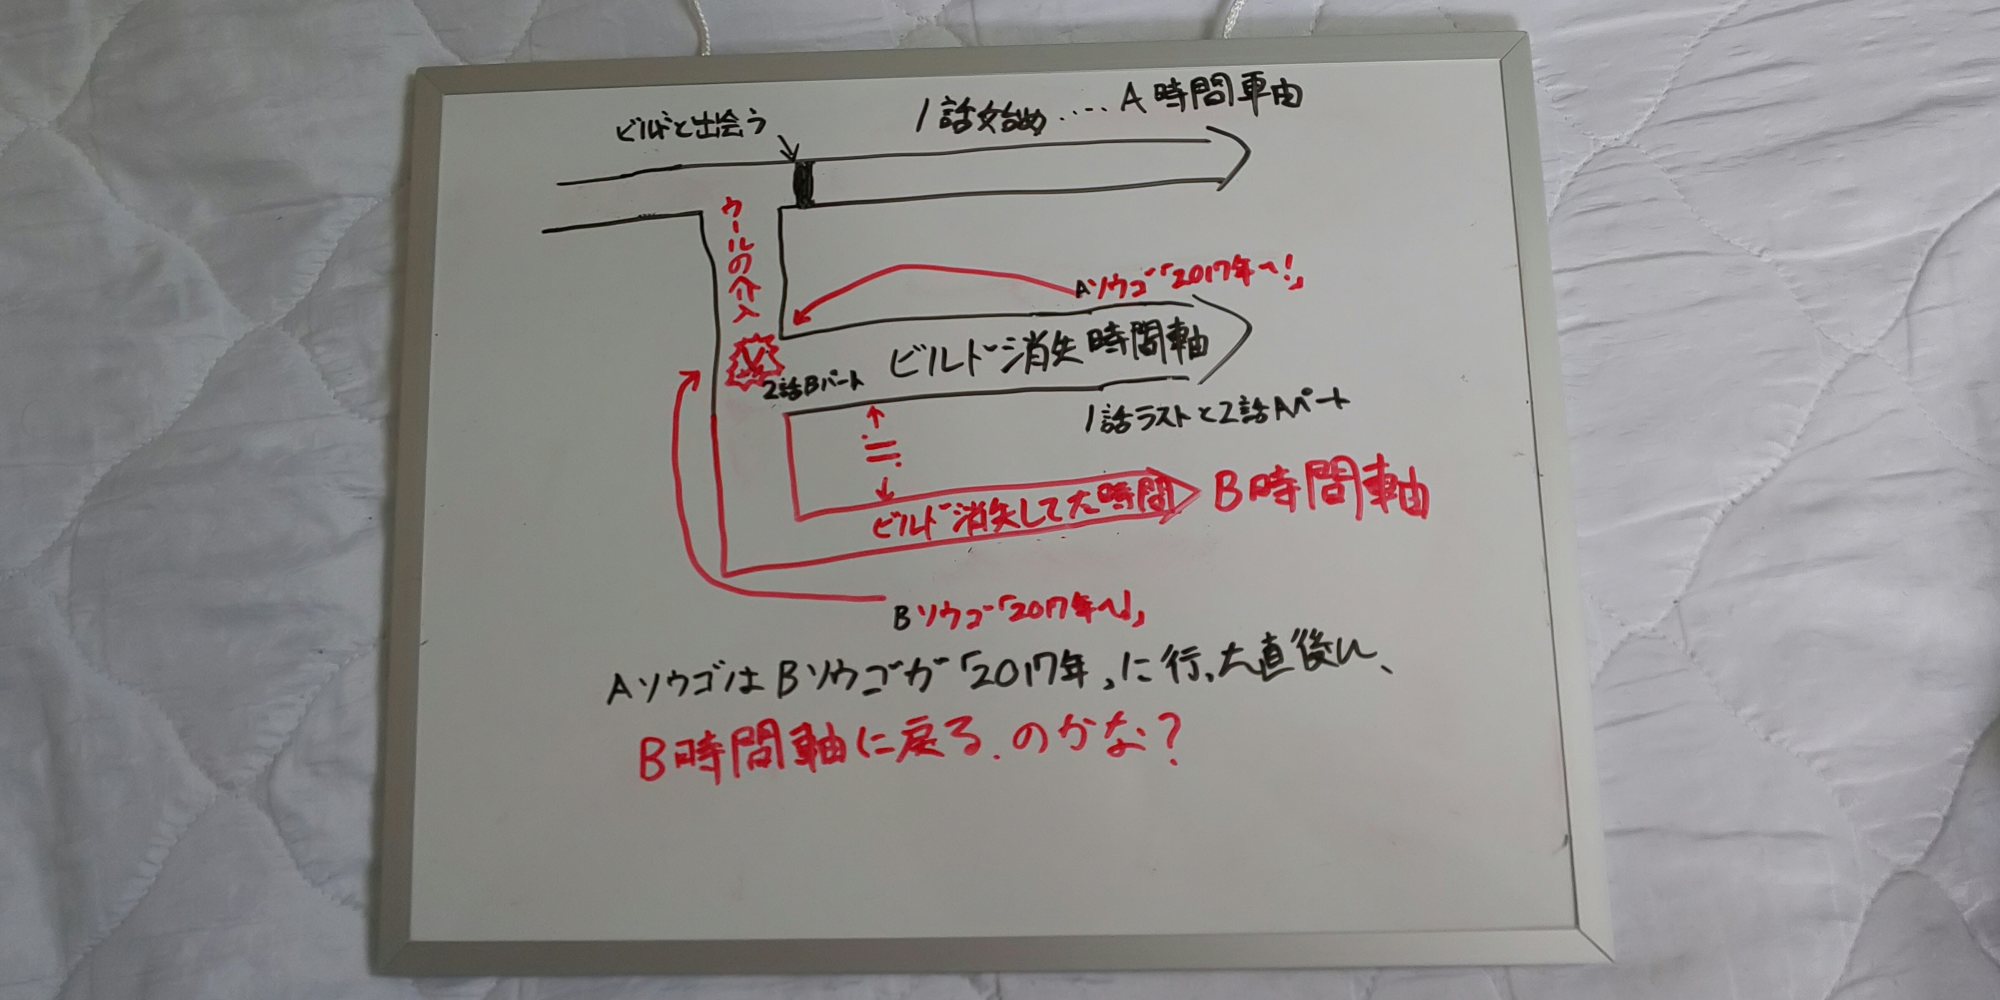 ビルドと出会う
1話始め‥‥A時間軸
ウールの介入
Aソウゴ「2017年へ!」
ビルド消失時間軸
2話Bパート
1話ラストと2話Aパート
ビルド消失してた時間
B時間軸
Bソウゴ「2017年へ!」
AソウゴはBソウゴが「2017年」に行った直後に、
B時間軸に戻る.のかな?